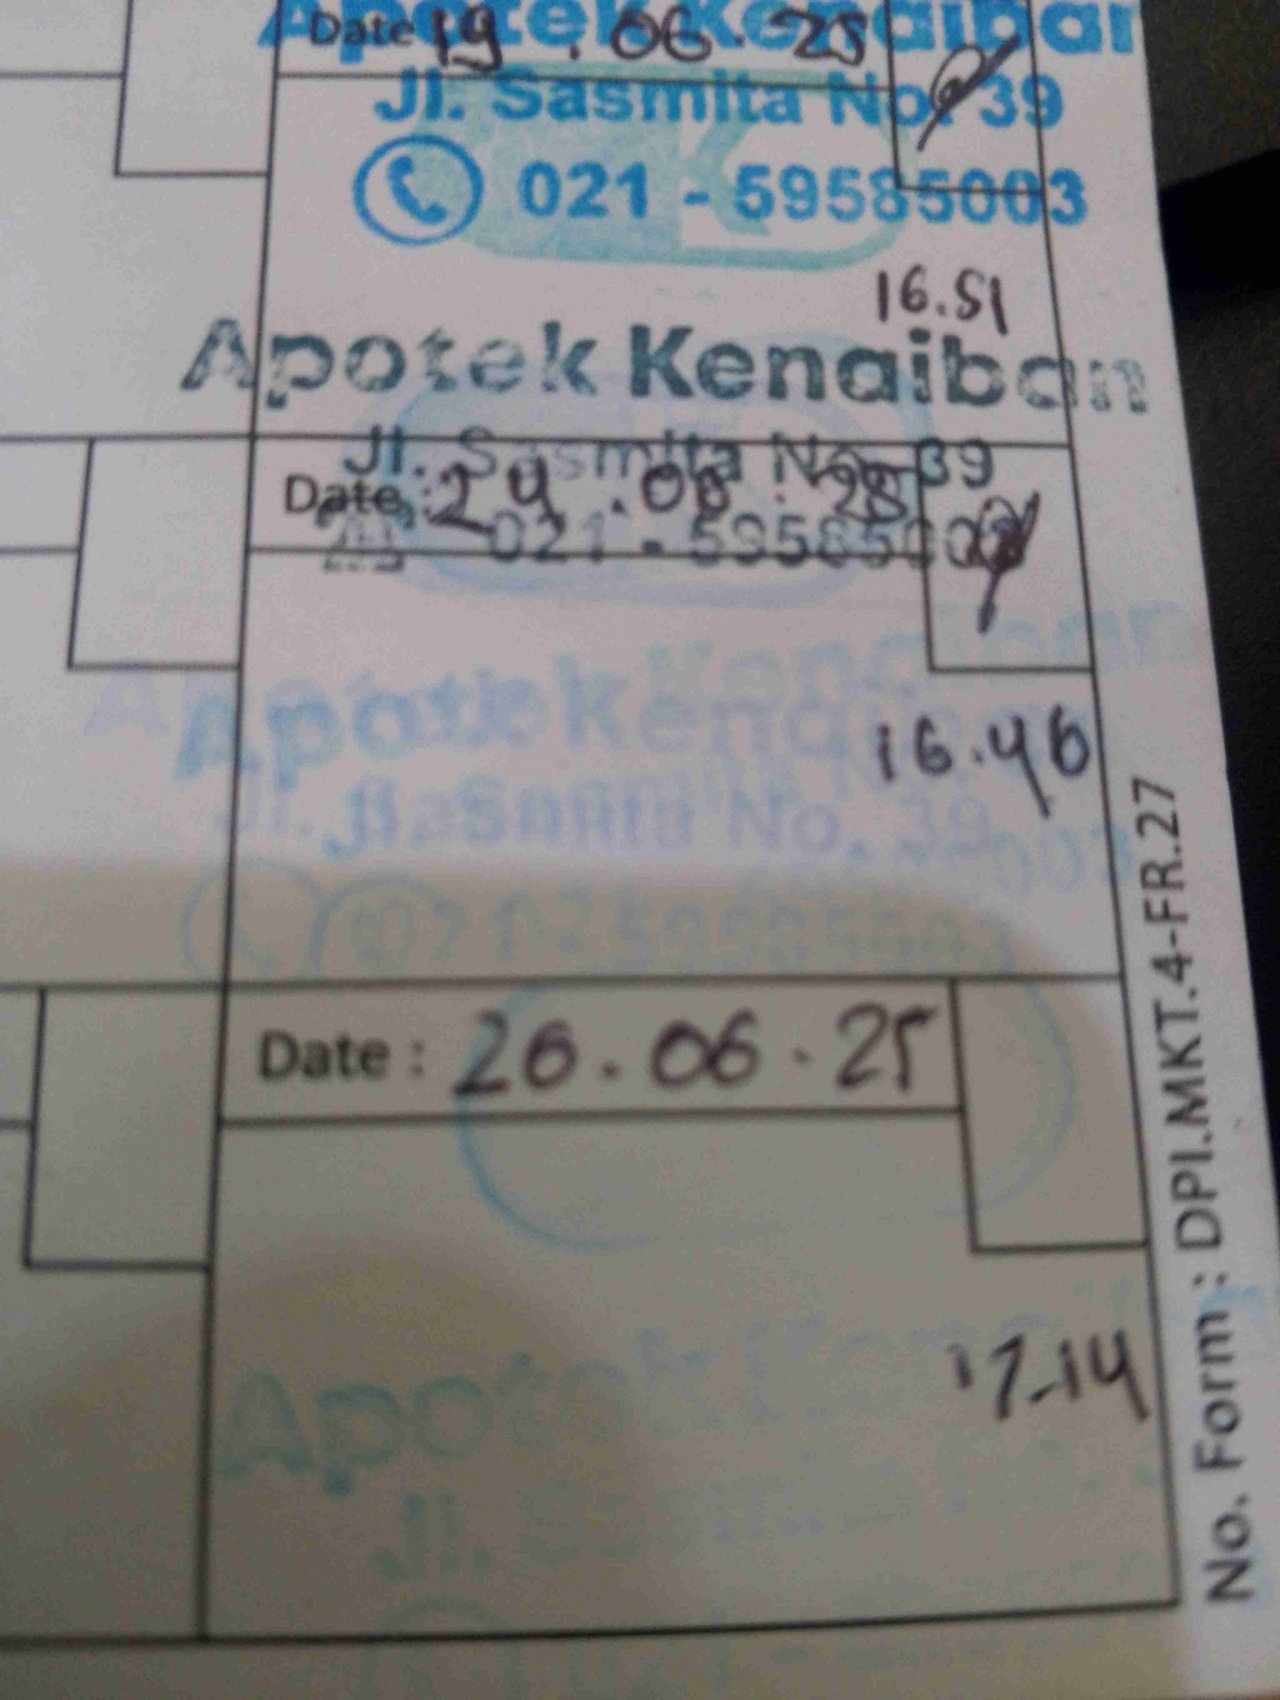 Apotek Kenaiban
Date 19.06.25
Jl. Sasmita No. 39
021 - 59585003
16.51
Apotek Kenaiban
Jl. Sasmita No. 39
Date : 24.06.25
021 - 59585003
Apotek Kenaiban
16.46
Jl. Sasmita No. 39
021 - 59585003
Date : 26.06.25
17.14
Apotek
Jl.
No. Form : DPI.MKT.4-FR.27